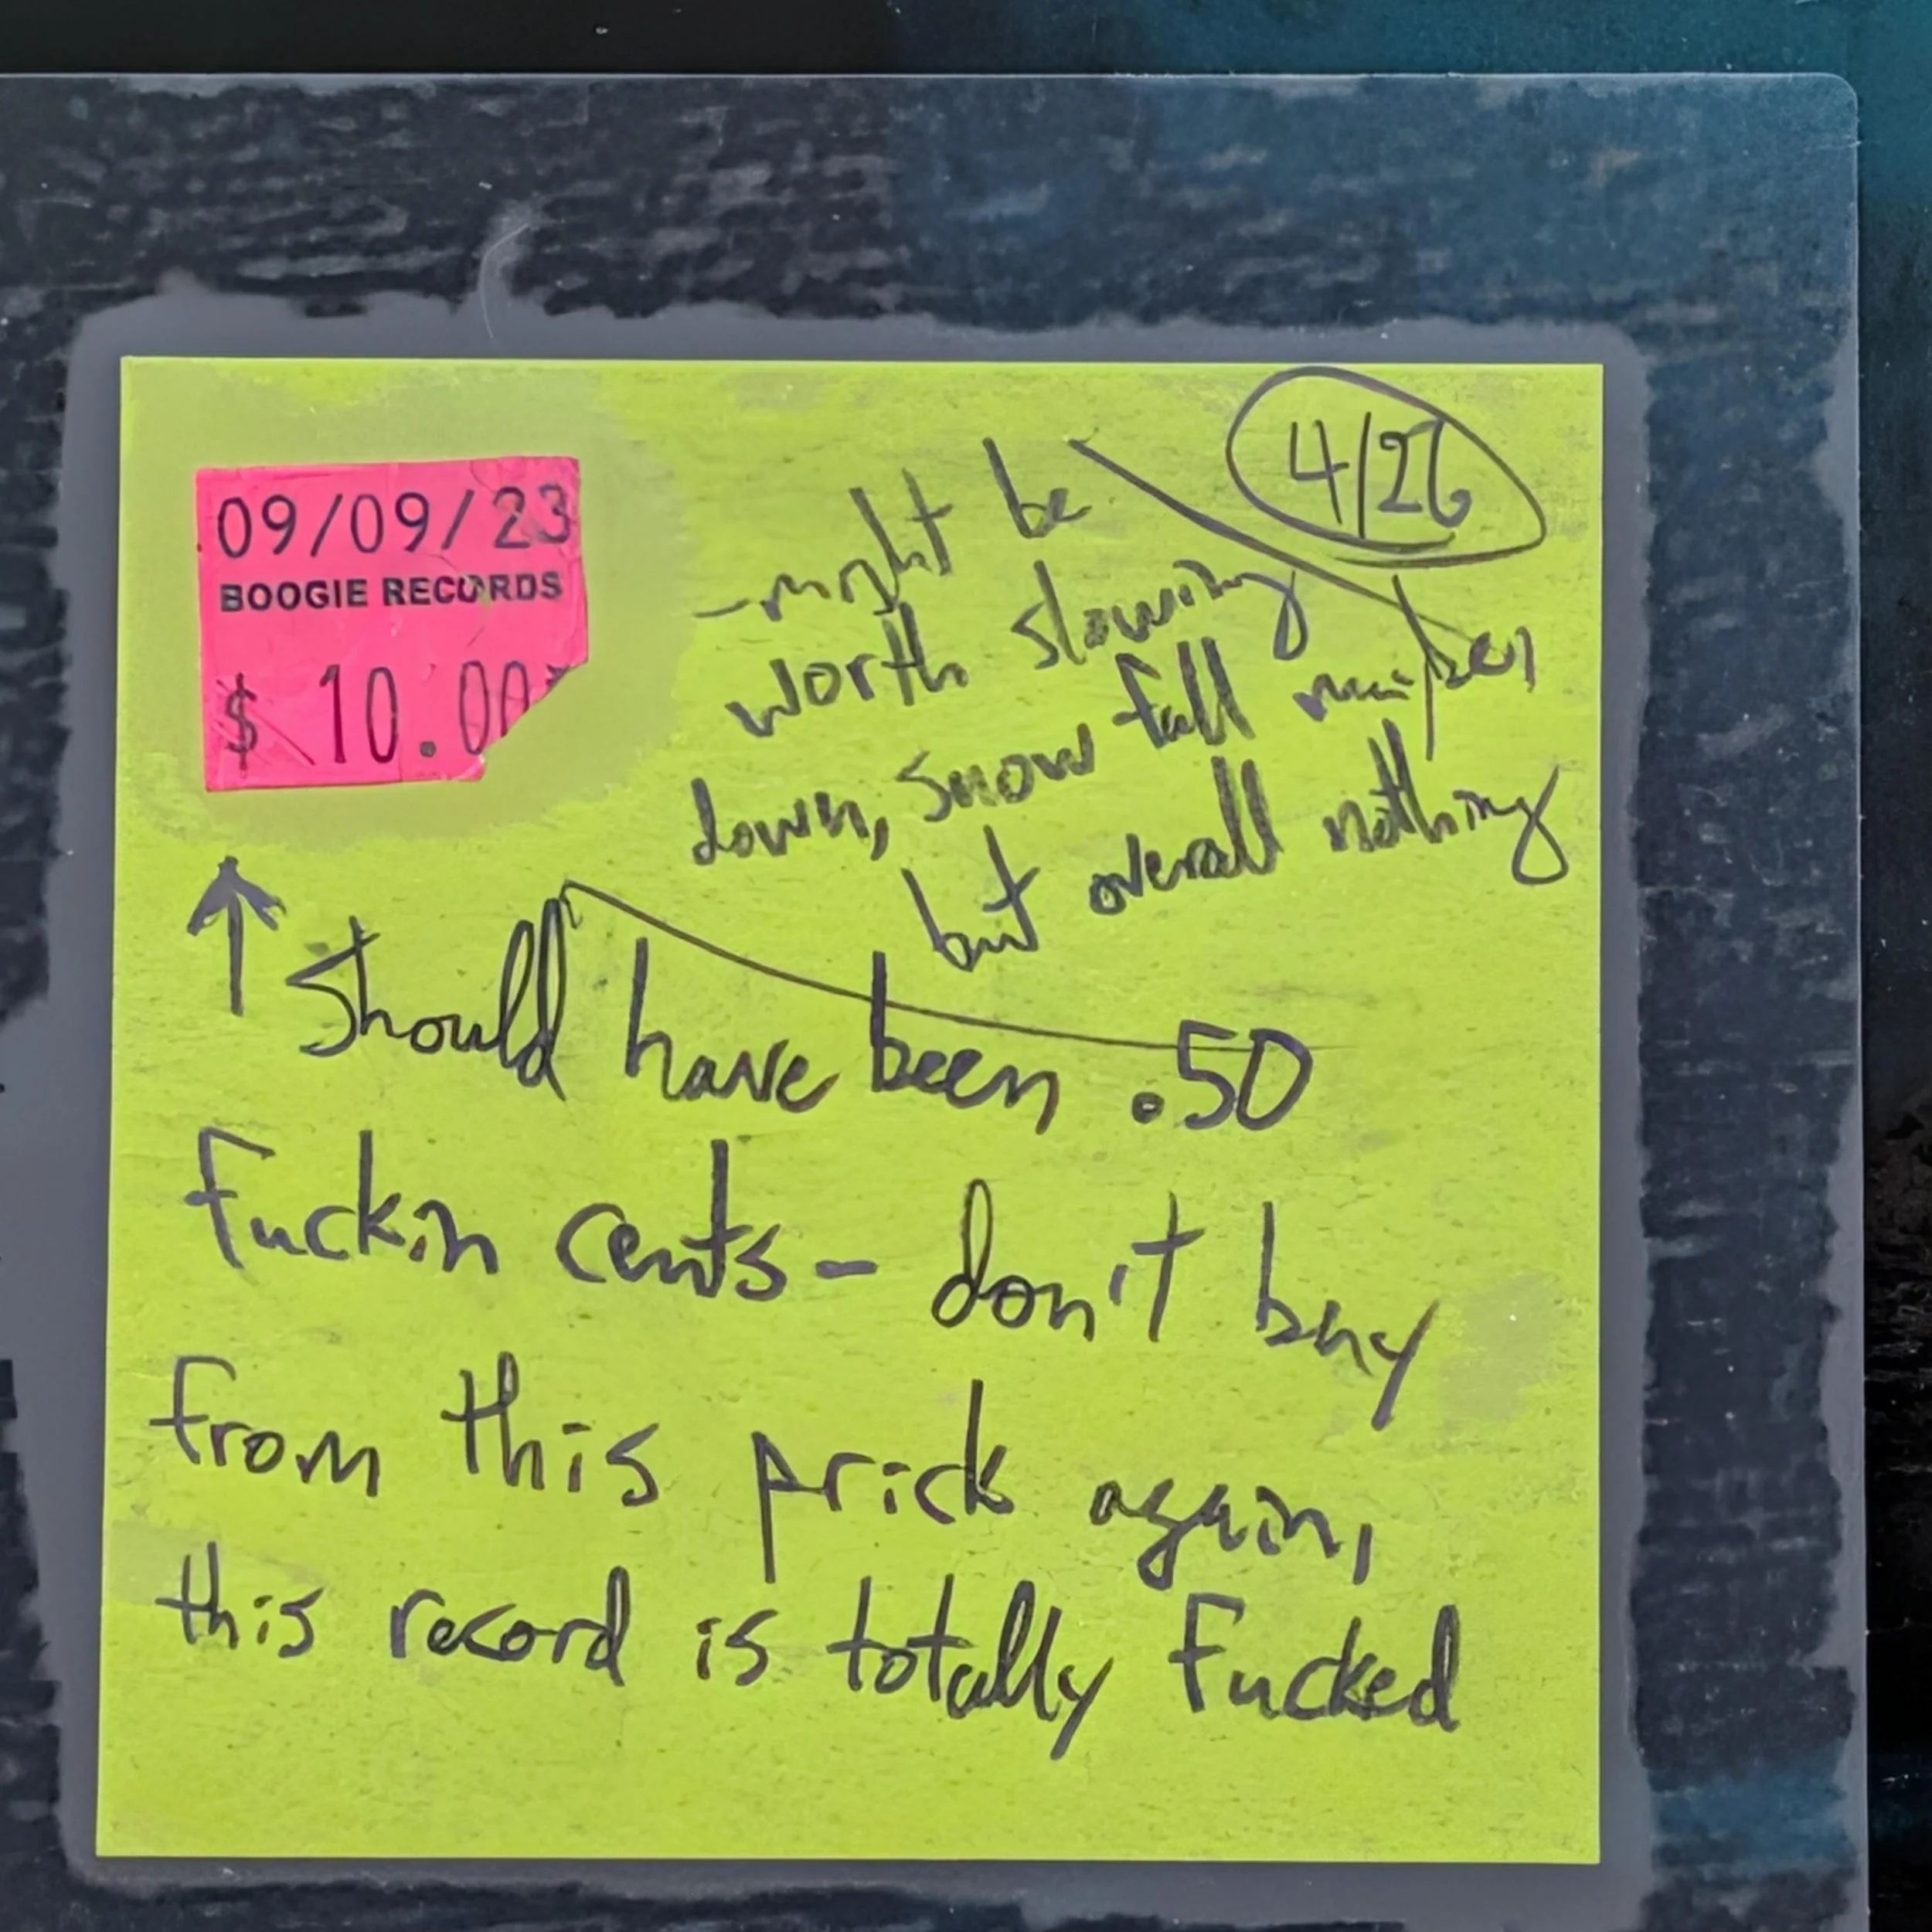 09/09/23
BOOGIE RECORDS
$ 10.00
4/26
- might be
worth slowing
down, snow fall
but overall nothing
↑ Should have been .50
Fuckin cents - don't buy
from this prick again,
this record is totally Fucked